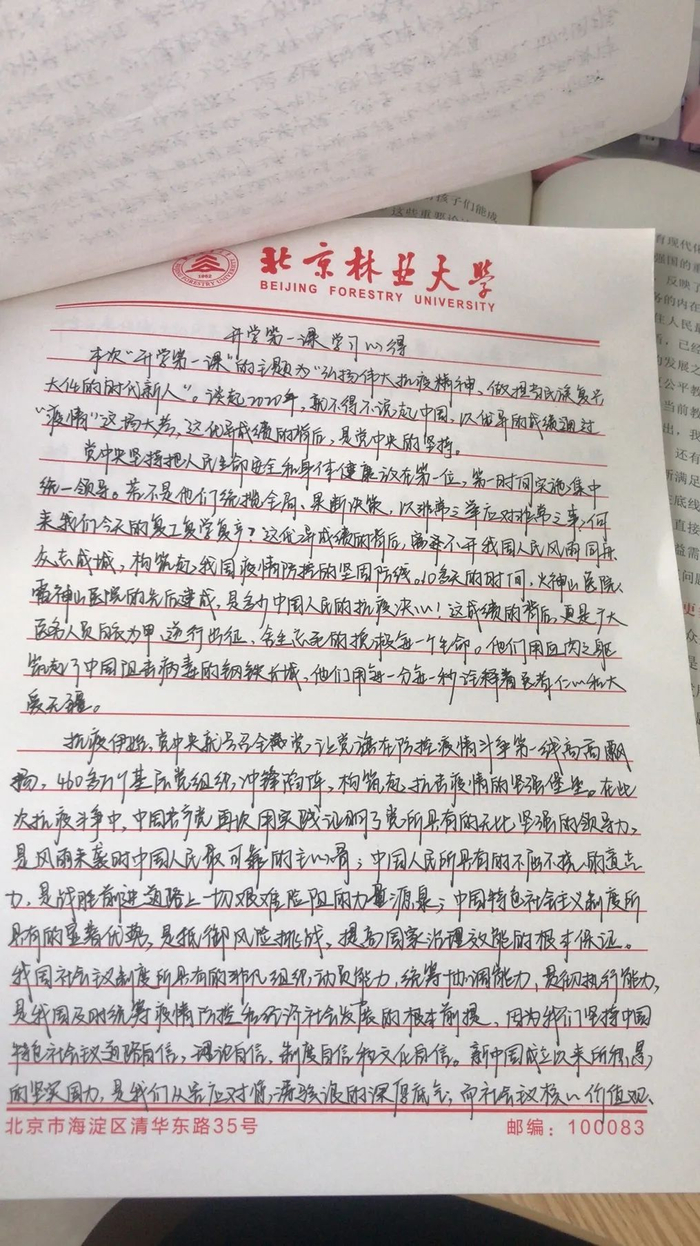 北京林业大学
BEIJING FORESTRY UNIVERSITY
开学第一课学习心得
本次“开学第一课”的主题为“弘扬伟大抗疫精神、做担当民族复兴
大任的时代新人”。谈起2020年,就不得不说起中国,以优异的成绩通过
“疫情”这场大考,这优异成绩的背后,是党中央的坚持。
党中央坚持把人民生命安全和身体健康放在第一位,第一时间实施集中
统一领导。若不是他们统揽全局、果断决策,以非常之举应对非常之事,何
来我们今天的复工复学复产?这优异成绩的背后,离不开我国人民风雨同舟
众志成城,构筑起我国疫情防控的坚固防线。10多天的时间,火神山医院、
雷神山医院的先后建成,是多少中国人民的抗疫决心!这成绩的背后,更是广大
医务人员白衣为甲、逆行出征,舍生忘死的挽救每一个生命。他们用血肉之躯
筑起了中国阻击病毒的钢铁长城,他们用每一分每一秒诠释着医者仁心和大
爱无疆。
抗疫伊始,党中央就号召全党,让党旗在防控疫情斗争第一线高高飘
扬,460多万个基层党组织,冲锋陷阵,构筑起抗击疫情的坚强堡垒。在此
次抗疫斗争中,中国共产党再次用实践证明了党所具有的无比坚强的领导力,
是风雨来袭时中国人民最可靠的主心骨;中国人民所具有的不屈不挠的意志
力,是战胜前进道路上一切艰难险阻的力量源泉;中国特色社会主义制度所
具有的显著优势,是抵御风险挑战,提高国家治理效能的根本保证。
我国社会主义制度所具有的非凡组织动员能力,统筹协调能力,贯彻执行能力,
是我国及时统筹疫情防控和经济社会发展的根本前提,因为我们坚持中国
特色社会主义道路自信,理论自信,制度自信和文化自信。新中国成立以来所积累
的坚实国力,是我们从容应对惊涛骇浪的深厚底气;而社会主义核心价值观、
北京市海淀区清华东路35号
邮编:100083